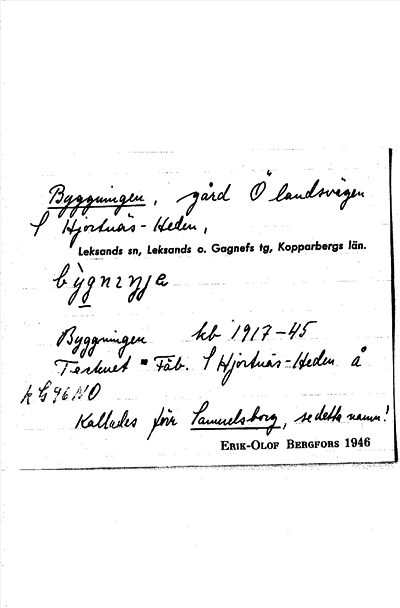 Byggningen, gård Ö landsvägen
i Hjortnäs-Heden,
Leksands sn, Leksands o. Gagnefs tg, Kopparbergs län.
Byggningen kb 1917-45
Tecknet = Fäb. i Hjortnäs-Heden å
k G96NO
Kallades förr Samuelsborg, se detta namn!
ERIK-OLOF BERGFORS 1946